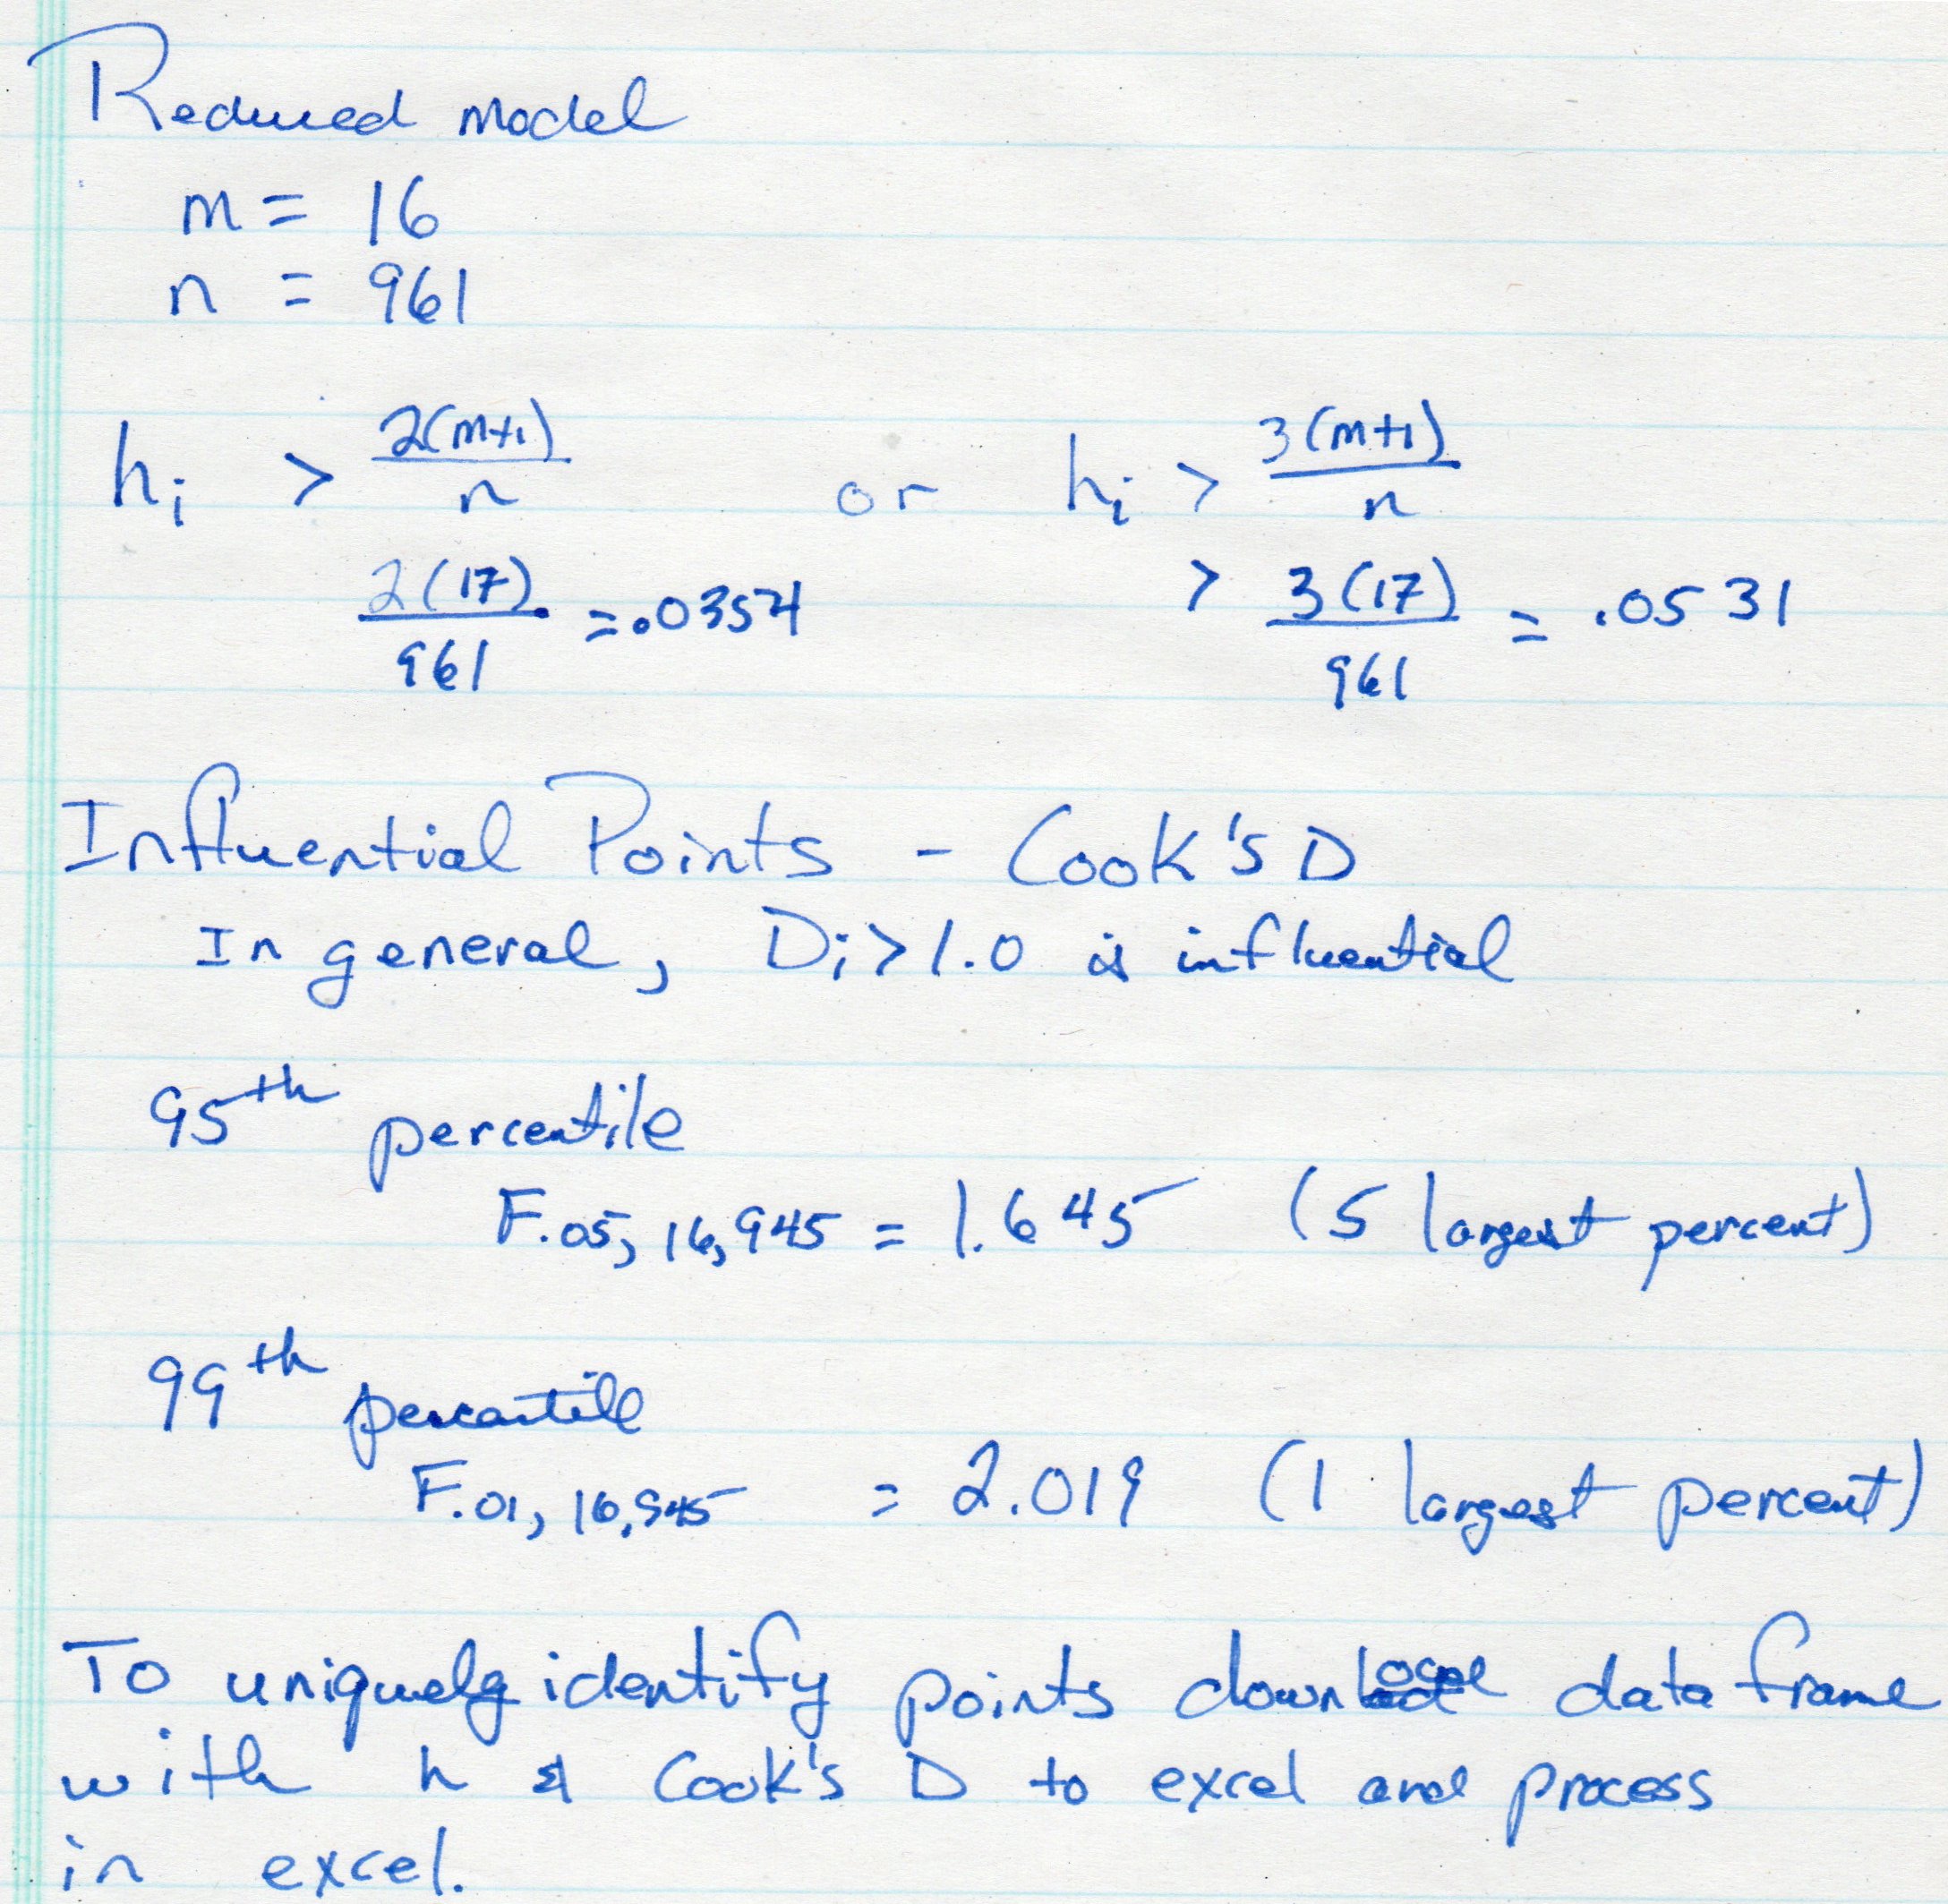 Reduced model
m = 16
n = 961
hi > 2(m+1)/n or hi > 3(m+1)/n
2(17)/961 = .0354 > 3(17)/961 = .0531
Influential Points - Cook's D
In general, Di > 1.0 is influential
95th percentile
F.05, 16, 945 = 1.645 (5 largest percent)
99th percentile
F.01, 16, 945 = 2.019 (1 largest percent)
To uniquely identify points download data frame
with h & Cook's D to excel and process
in excel.